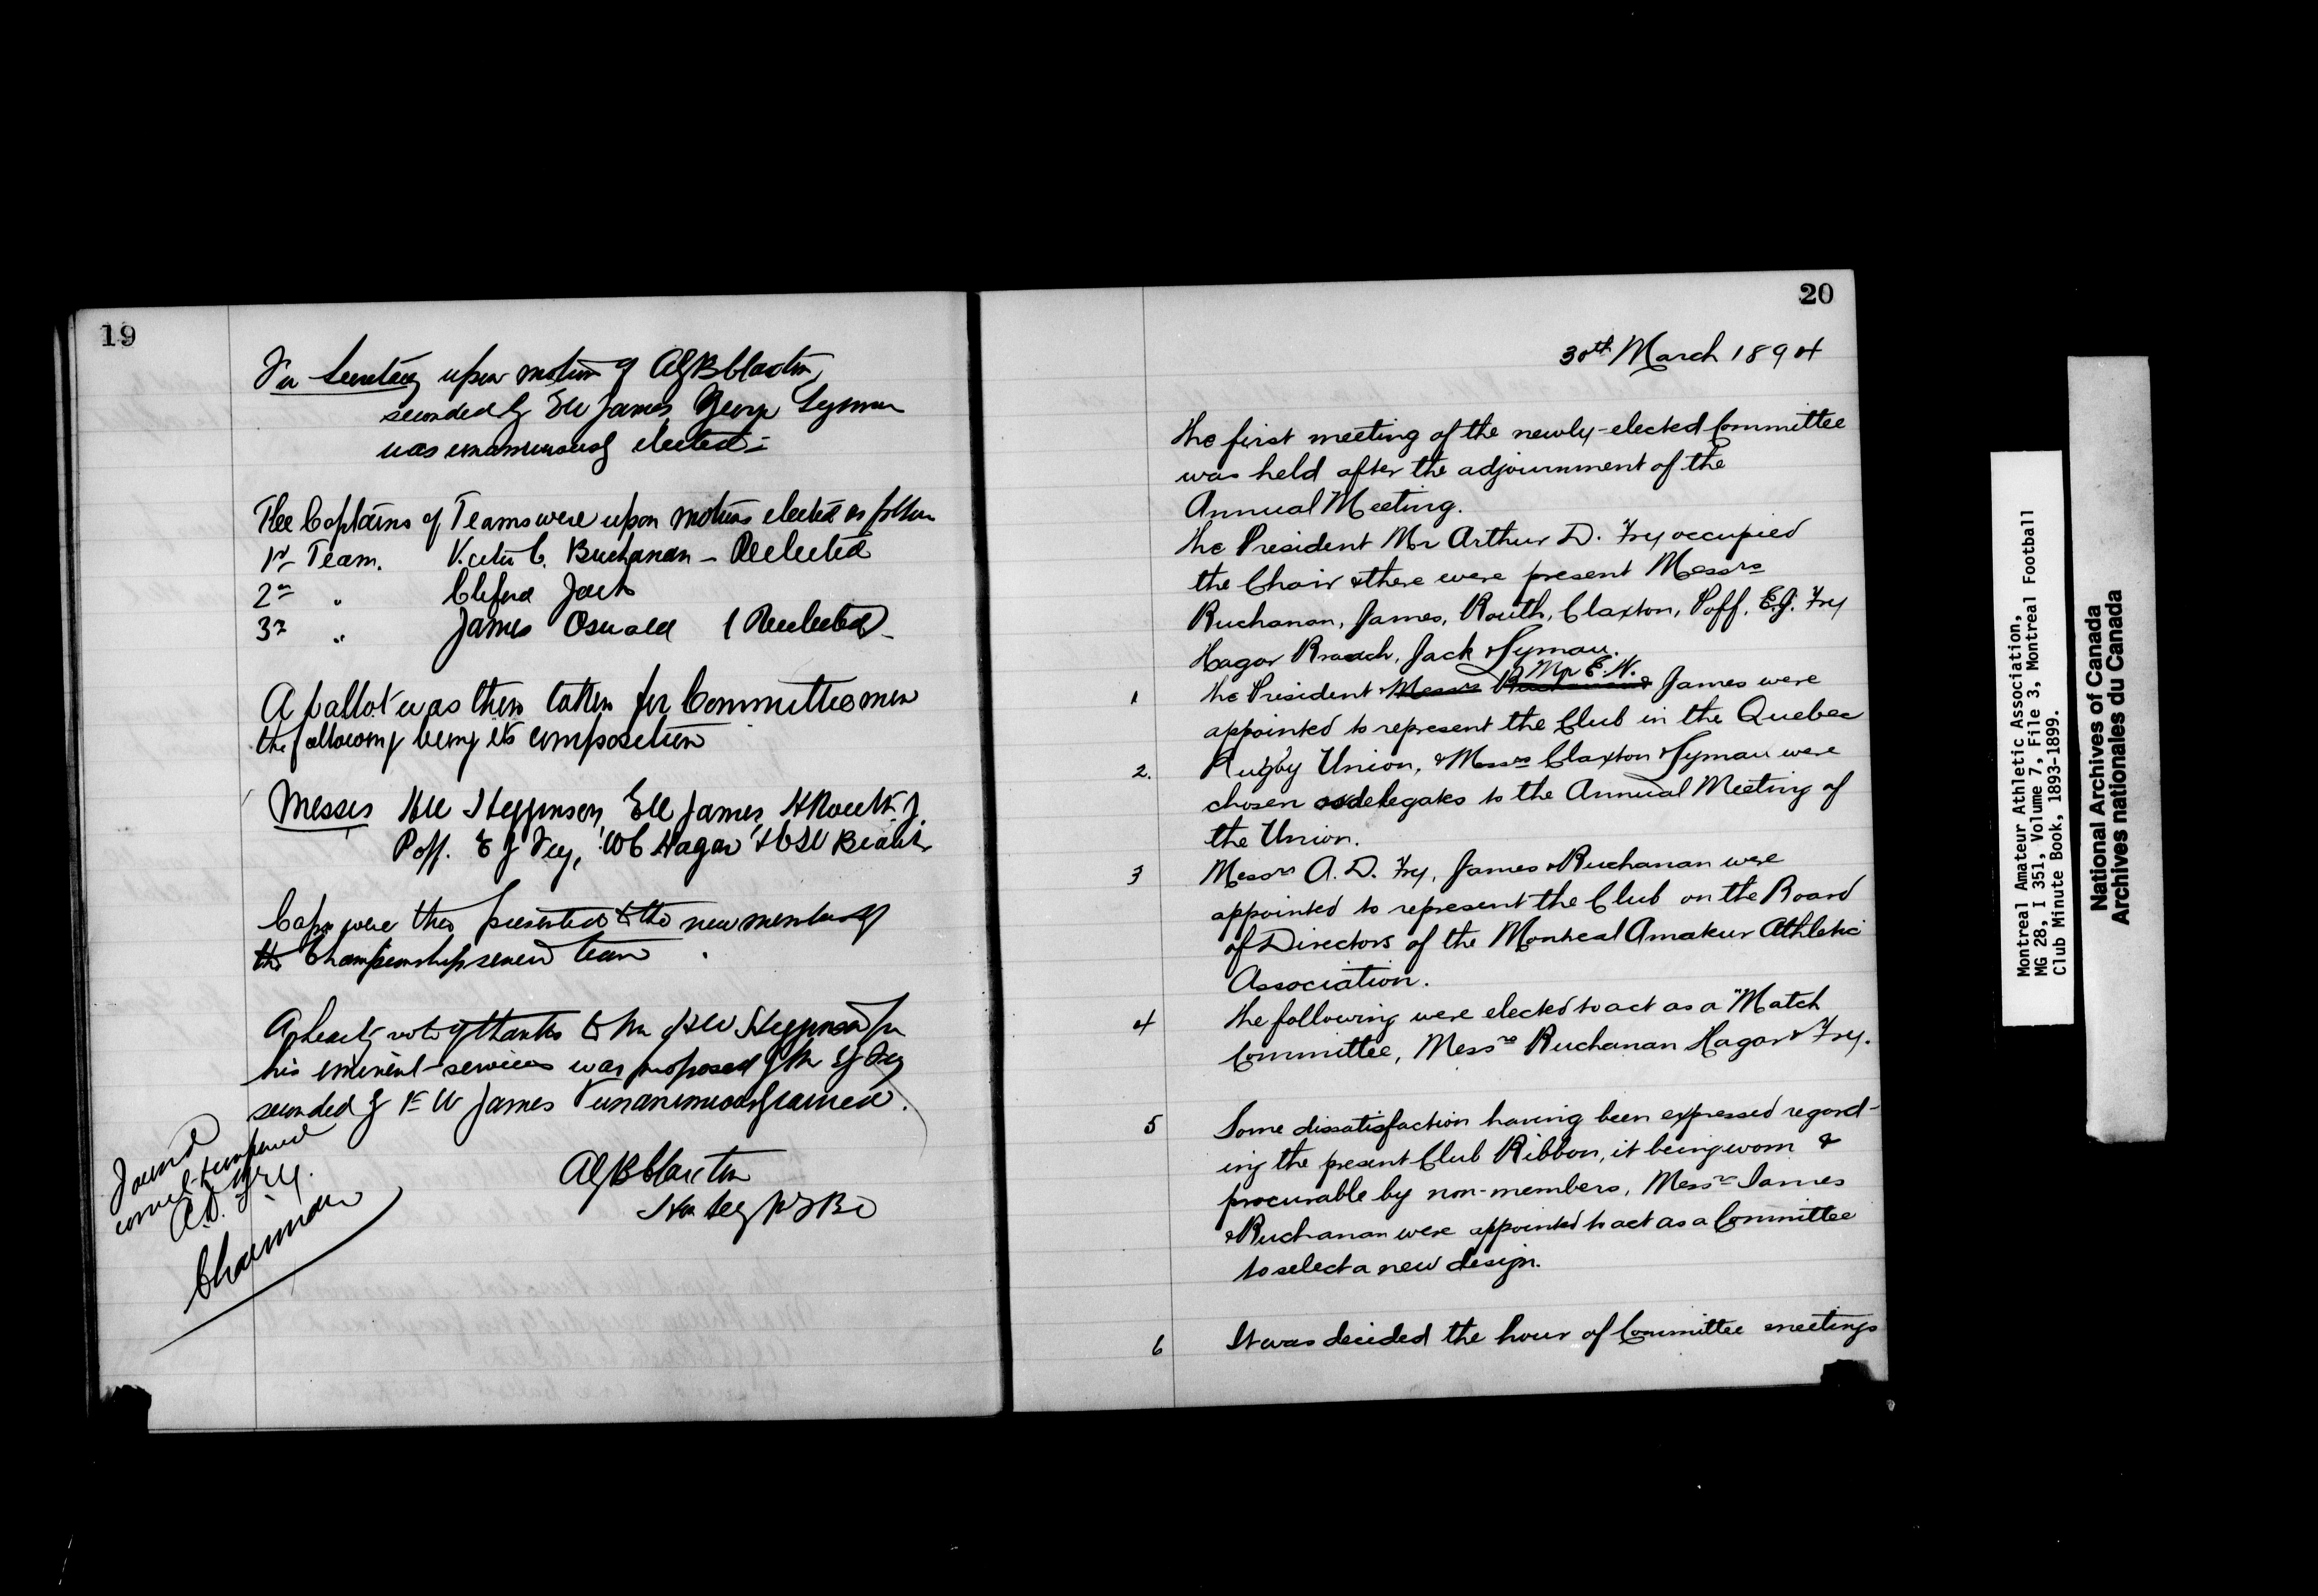 19
For Secretary upon motion of Alf B Claxton,
seconded by E W James, George Lyman
was unanimously elected =
The Captains of Teams were upon motions elected as follow
1st Team. Victor C. Buchanan - Reelected
2nd " Clifford Jack
3rd " James Oswald (Reelected)
A ballot was then taken for Committeemen
the following being its composition
Messrs H W Higginson, E W James, H Routh, J.
Poff. E J Fry, W C Hagar &
Caps were then presented to the new members of
the Championship team
A hearty vote of thanks to Mr H W Higginson for
his eminent services was proposed by Mr E J Fry
seconded by E W James & unanimously carried.
Found
correct & confirmed
A.D. Fry.
Chairman
Alf B Claxton
Hon Secy
20
30th March 1894
The first meeting of the newly-elected Committee
was held after the adjournment of the
Annual Meeting.
The President Mr Arthur D. Fry occupied
the Chair & there were present Messrs
Buchanan, James, Routh, Claxton, Poff, E.J. Fry
Hagar Branch, Jack & Lyman.
& Mr E. W.
1 The President Messrs Buchanan & James were
appointed to represent the Club in the Quebec
2. Rugby Union, & Messrs Claxton & Lyman were
chosen as delegates to the Annual Meeting of
the Union.
3 Messrs A. D. Fry, James & Buchanan were
appointed to represent the Club on the Board
of Directors of the Montreal Amateur Athletic
Association.
4 The following were elected to act as a "Match
Committee, Messrs Buchanan Hagar & Fry.
5 Some dissatisfaction having been expressed regard-
ing the present Club Ribbon, it being worn &
procurable by non-members, Messrs James
& Buchanan were appointed to act as a Committee
to select a new design.
6 It was decided the hour of Committee meetings
Montreal Amateur Athletic Association,
MG 28, I 351, Volume 7, File 3, Montreal Football
Club Minute Book, 1893-1899.
National Archives of Canada
Archives nationales du Canada